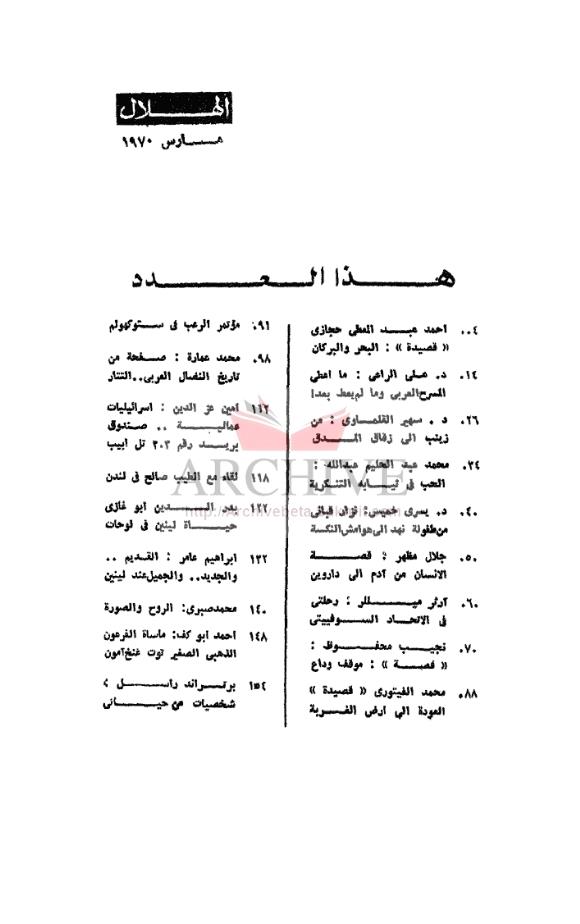 الهلال
مارس ١٩٧٠
هذا العدد
٠٠٤ احمد عبد المعطى حجازى
« قصيدة » : البحر والبركان
٠١٤ د. على الراعى : ما اعطى
المسرح العربى وما لم يعط بعد !
٠٢٦ د . سهير القلماوى : من
زينب الى زقاق المدق
٠٣٤ محمد عبد الحليم عبدالله :
الحب فى ثيابه التنكرية
٠٤٠ د. يسرى خميس : نزار قبانى
من طفولة نهد الى هوامش النكسة
٠٥٠ جلال مظهر : قصة
الانسان من آدم الى داروين
٠٦٠ آرثر ميللر : رحلتى
فى الاتحاد السوفييتى
٠٧٠ نجيب محفوظ :
« قصة » : موقف وداع
٠٨٨ محمد الفيتورى « قصيدة »
العودة الى ارض الغربة
٠٩١ مؤتمر الرعب فى ستوكهولم
٠٩٨ محمد عمارة : صفحة من
تاريخ النضال العربى.. التتار
١١٢ امين عز الدين : اسرائيليات
عمالية .. صندوق
بريد رقم ٣٠٣ تل ابيب
١١٨ لقاء مع الطيب صالح فى لندن
١٢٢ بدر الدين ابو غازى
حياة لينين فى لوحات
١٣٢ ابراهيم عامر : القديم ..
والجديد.. والجميل عند لينين
١٤٠ محمد صبرى: الروح والصورة
١٤٨ احمد ابو كف: ماساة الفرعون
الذهبى الصغير توت عنخ آمون
١٥٤ برتراند راسل
شخصيات من حياتى
ARCHIVE